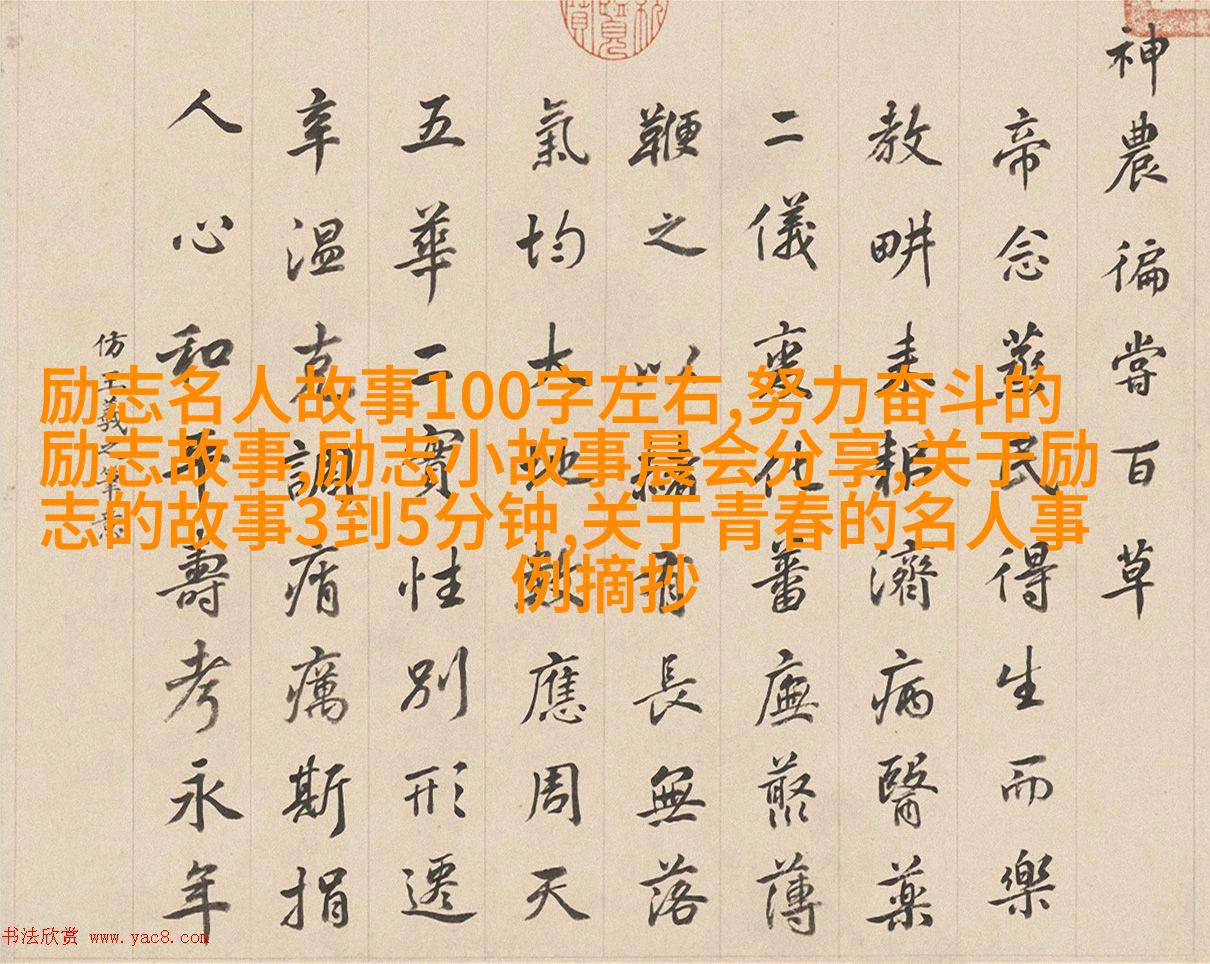 励志名人故事100字左右,努力奋斗的
励志故事,励志小故事晨会分享,关于励
志的故事3到5分钟,关于青春的名人事
例摘抄
神農徧嘗百草
帝念茲民得生而樂
教畊耒耜濟病醫藥
二儀化蕃廡藂薄
鞭之以長無落
氣均大地數應周天
五華二實性別形遷
辛温克調痟癘斯捐
人心和平壽考永年
仿王羲之筆意
书法欣赏 www.yac8.com